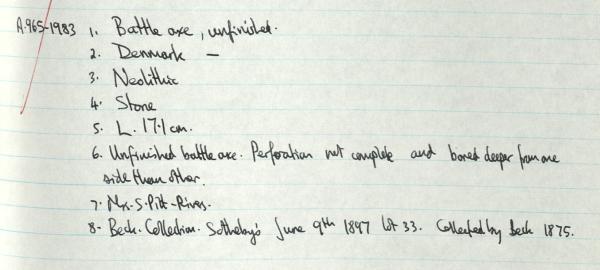 A.965-1983 1. Battle axe, unfinished.
2. Denmark —
3. Neolithic
4. Stone
5. L. 17.1 cm.
6. Unfinished battle axe. Perforation not complete and bored deeper from one
side than other.
7. Mrs. S. Pitt-Rivers.
8. Beck. Collection. Sotheby's June 9th 1897 lot 33. Collected by Beck 1875.